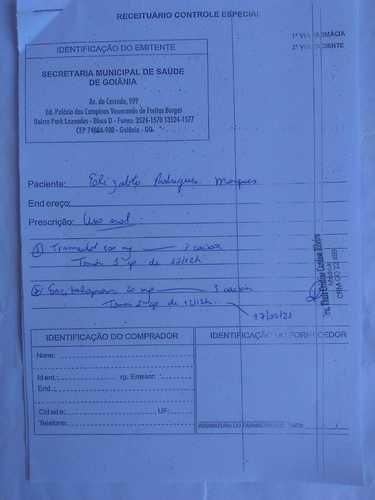 RECEITUÁRIO CONTROLE ESPECIAL
1ª VIA FARMÁCIA
2ª VIA PACIENTE
IDENTIFICAÇÃO DO EMITENTE
SECRETARIA MUNICIPAL DE SAÚDE
DE GOIÂNIA
Av. do Cerrado, 999
Ed. Palácio das Campinas Venerando de Freitas Borges
Bairro Park Lozandes - Bloco D - Fones: 3524-1570 / 3524-1577
CEP 74884-900 - Goiânia - GO
Paciente: Elizabete Rodrigues Marques
Endereço:
Prescrição: Uso oral
① Tramadol 100 mg 2 caixas
Tomar 1 cp de 12/12h
② Escitalopram 20 mg 3 caixas
Tomar 1 cp de 12/12h
17/05/21
Médico
IDENTIFICAÇÃO DO COMPRADOR
IDENTIFICAÇÃO DO FORNECEDOR
Nome:
Ident.: rg. Emissor:
End.:
Cidade: UF:
Telefone:
ASSINATURA DO FARMACÊUTICO DATA / /